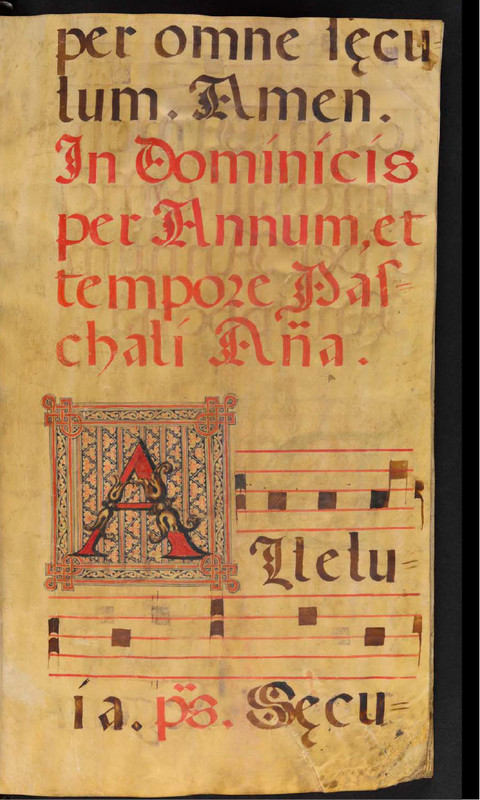 per omne sęcu
lum. Amen.
In Dominicis
per Annum, et
tempore Pas=
chali Aña.
Allelu=
ia. ps. Sęcu=